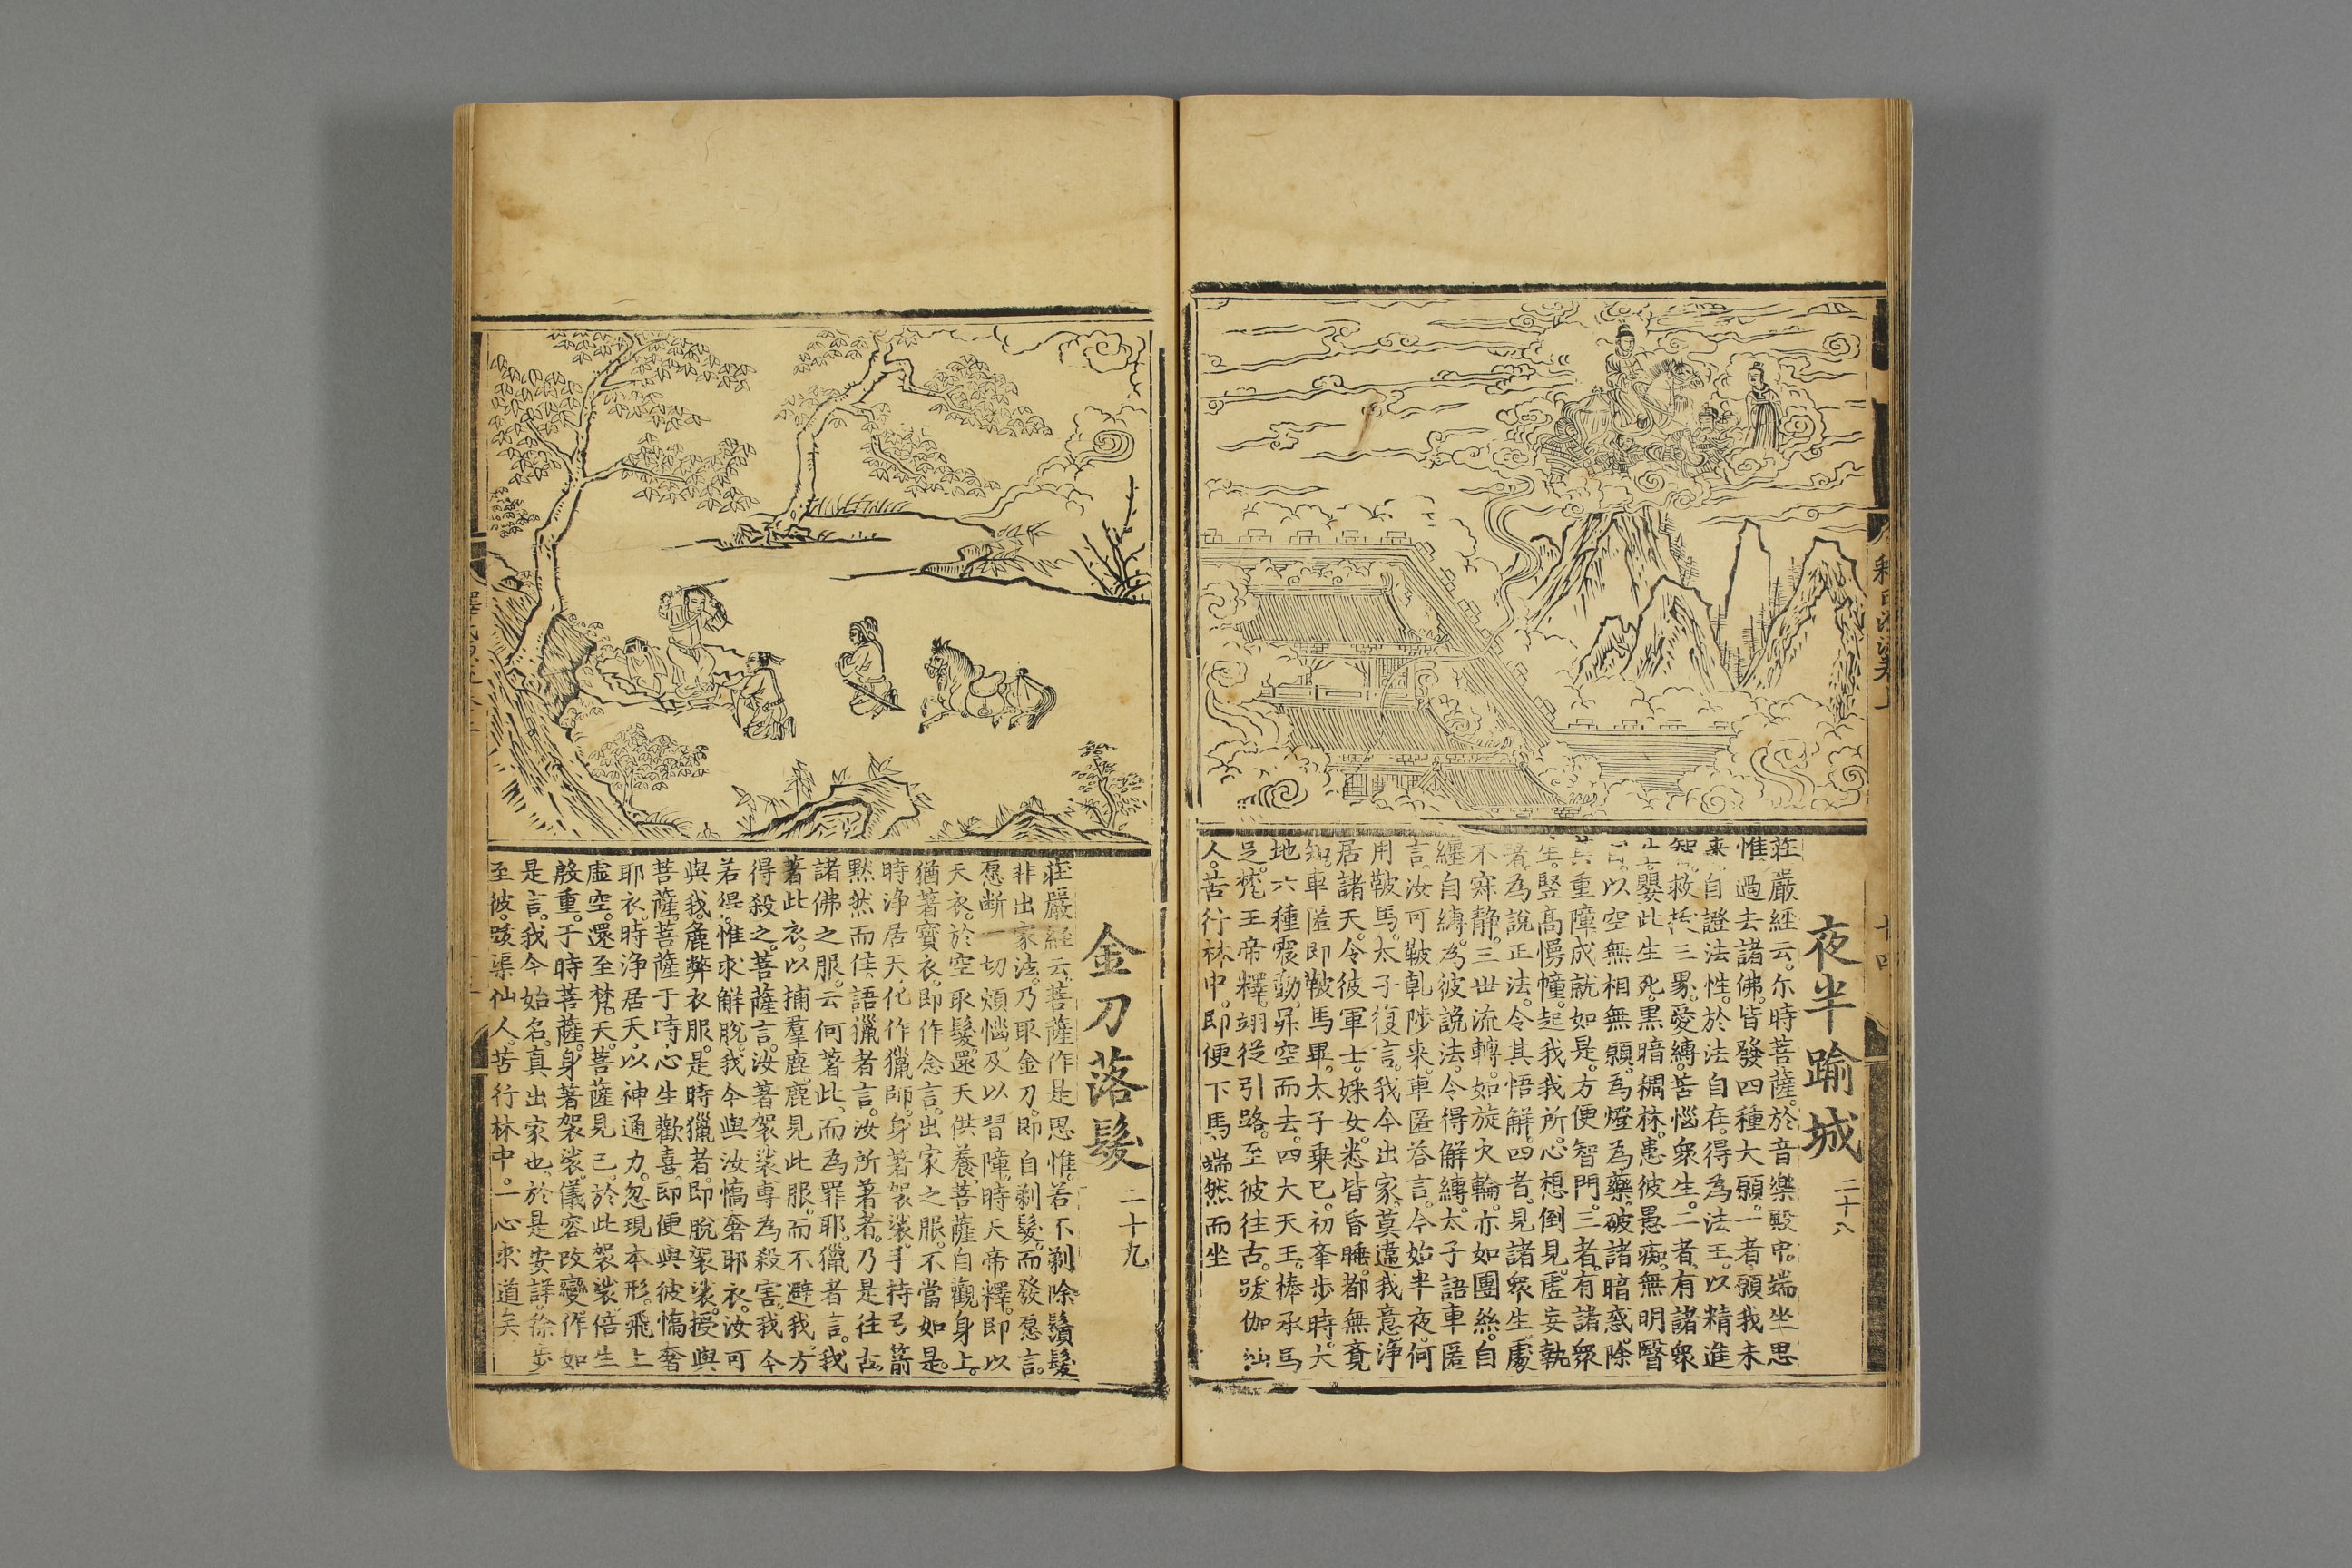 夜半踰城 二十八
莊嚴經云。尒時菩薩。於音樂殿中。端坐思
惟。過去諸佛。皆發四種大願。一者。願我未
来。自證法性。於法自在。得為法王。以精進
智。救拔三界。愛縛。苦惱衆生。二者。有諸衆
生。嬰此生死。黒暗稠林。患彼愚癡。無明瞖
目。以空無相無願。為燈為藥。破諸暗惑。除
其重障。成就如是。方便智門。三者。有諸衆
生。竪髙慢幢。起我我所。心想倒見。虛妄執
著。為說正法。令其悟解。四者。見諸衆生。處
不寂靜。三世流轉。如旋火輪。亦如團絲。自
纏自縛。為彼説法。令得解縛。太子語車匿
言。汝可鞁乹陟来。車匿荅言。今始半夜。何
用鞁馬。太子復言。我今出家。莫違我意。淨
居諸天。令彼軍士。婇女。悉皆昏睡。都無竟
知。車匿即鞁馬畢。太子乗已。初夆步時。大
地六種震動。昇空而去。四大天王。棒承馬
足。梵王帝釋。翊從引路。至彼往古。跋伽仙
人。苦行林中。即便下馬。端然而坐
金刀落髮 二十九
莊嚴経云。菩薩作是思惟。若不剃除鬚髮
非出家法。乃取金刀。即自剃髮。而發愿言。
愿断一切煩惱。及以習障。時天帝釋。即以
天衣。於空取髮。還天供養。菩薩自觀身上。
猶著寳衣。即作念言。出家之服。不當如是。
時淨居天。化作獵師。身著袈裟。手持弓箭
黙然而住。語獵者言。汝所著者。乃是往古。
諸佛之服。云何著此。而為罪耶。獵者言。我
著此衣。以捕羣鹿。鹿見此服。而不避我。方
得殺之。菩薩言。汝著袈裟。專為殺害。我今
若得。惟求解脫。我今與汝憍奢耶衣。汝可
與我。麁弊衣服。是時獵者。即脫袈裟。授與
菩薩。菩薩于時。心生歡喜。即便與彼憍奢
耶衣。時淨居天。以神通力。忽現本形。飛上
虛空。還至梵天。菩薩見已。於此袈裟。倍生
殷重。于時菩薩。身著袈裟。儀容改變。作如
是言。我今始名。真出家也。於是安詳。徐步
至彼。跋渠仙人。苦行林中。一心求道矣